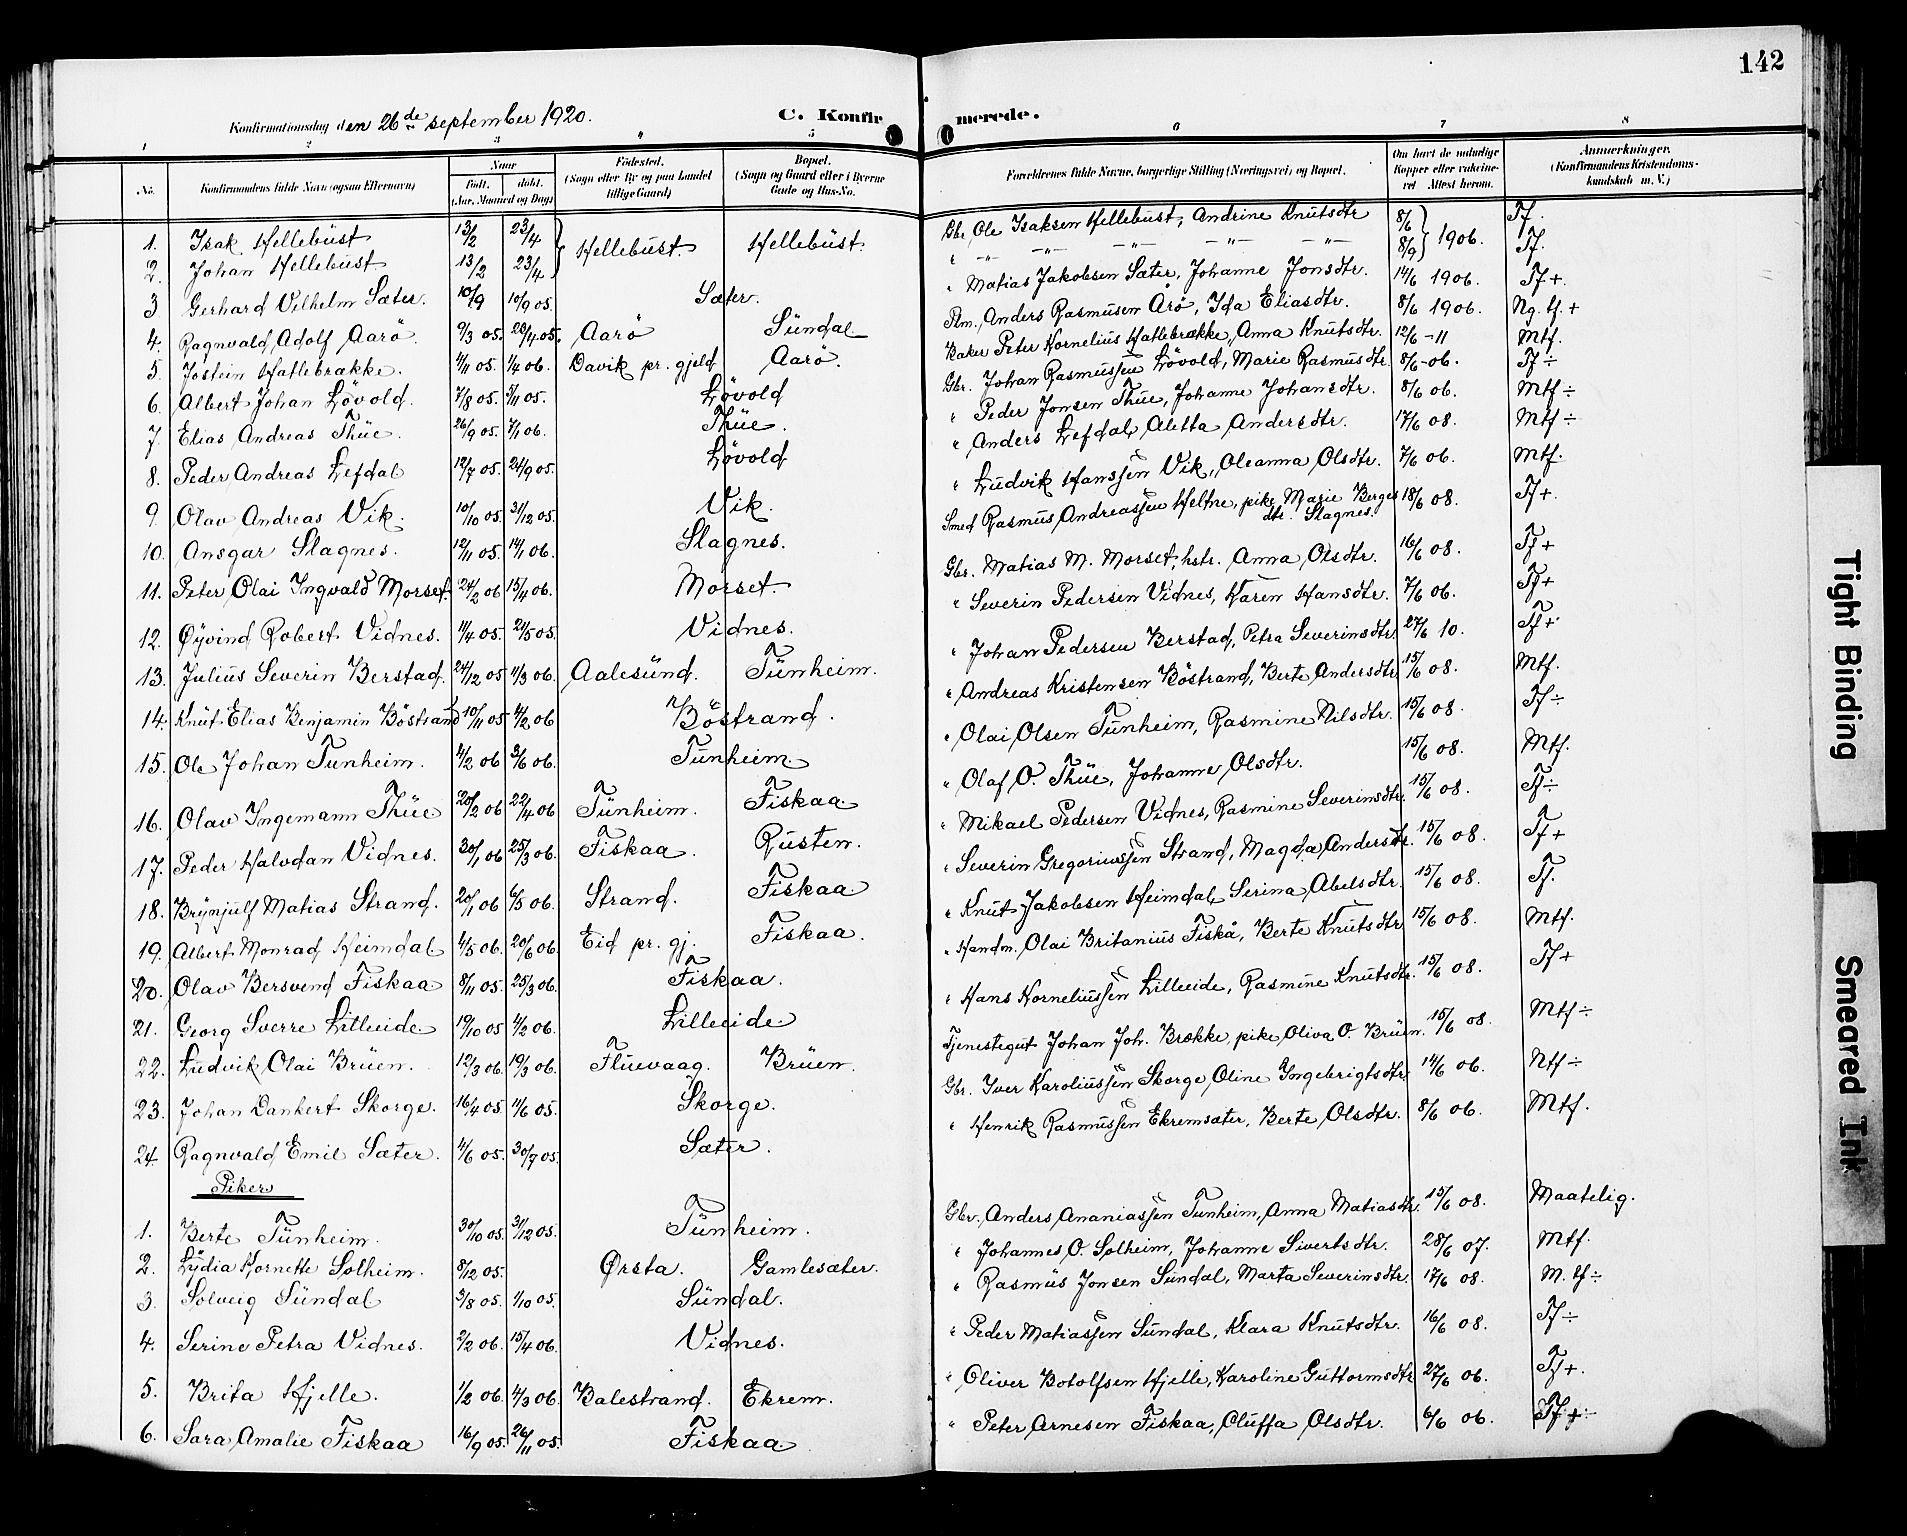 142
Konfirmationsdag den 26de september 1920. C. Konfirmerede.
1 2 3 4 5 6 7 8
No. Konfirmandens fulde Navn (ogsaa Efternavn) Naar født. døbt. (Aar, Maaned og Dag) Födested. (Sogn eller By og paa Landet tillige Gaard) Bopæl. (Sogn og Gaard eller i Byerne Gade og Hus-No. Forældrenes fulde Navne, borgerlige Stilling (Næringsvei) og Bopæl. Om havt de naturlige Kopper eller vaksineret Attest herom. Anmærkninger. (Konfirmandens Kristendomskundskab m. V.)
1. Isak Hellebüst 13/2 23/4 Hellebüst. Hellebüst. Gbr. Ole Isaksen Hellebüst, Andrine Knütsdtr 8/6 1906. Tf.
2. Johan Hellebüst 13/2 23/4 " -"- -"- -"- -"- 8/9 Tf.
3 Gerhard Vilhelm Sæter. 10/9 10/9 05. Sæter. " Matias Jakobsen Sæter, Johanne Jonsdtr. 14/6 1906. Tf +
4. Ragnvald Adolf Aarö. 9/3 05. 28/4 05. Aarö Sündal Pm. Anders Rasmusen Arö, Ida Eliasdtr. 8/6 1906. Ng. tf. +
5. Jostein Hatlebrække. 4/11 05. 1/4 06. Davik pr. gjeld Aarö. Baker Peter Kornelius Hatlebrække, Anna Knütsdtr. 12/6 -11 Mtf.
6. Albert Johan Lövold. 7/8 05. 5/11 05. Lövold Gbr. Johan Rasmussen Lövold, Marie Rasmusdtr. 8/6 -06. Tf ÷
7. Elias Andreas Thüe. 26/9 05. 7/1 06. Thüe. " Peder Jonsen Thüe, Johanne Johansdtr. 8/6 06. Mtf ÷
8. Peder Andreas Lefdal 12/7 05. 24/9 05. Lövold " Anders Lefdal, Aletta Andersdtr. 17/6 08. Mtf ÷
9. Olav Andreas Vik. 10/10 05. 31/12 05. Vik. " Lüdvik Hanssen Vik, Oleanna Olsdtr. 7/6 06. Mtf.
10. Ansgar Slagnes. 12/11 05. 14/1 06. Slagnes. Smed Rasmüs Andreassen Heltne, pike Marie Berges dtr. Slagnes. 18/6 08. Tf +.
11. Peter Olai Ingvald Morset. 24/2 06 15/4 06. Morset. Gbr. Matias M. Morset, hstr. Anna Olsdtr. 16/6 08. Tf +
12. Øyvind Robert Vidnes. 11/4 05. 21/5 05. Vidnes. " Severin Pedersen Vidnes, Karen Hansdtr. 7/6 06. Tf +
13. Jülius Severin Berstad. 24/12 05 11/3 06. Aalesünd. Tünheim. " Johan Pedersen Berstad, Petra Severinsdtr. 27/6 10. Tf +
14. Knüt Elias Benjamin Böstrand 10/11 05 4/2 06 Böstrand. " Andreas Kristensen Böstrand, Berte Andersdtr. 15/6 08. Mtf.
15. Ole Johan Tünheim. 4/2 06 3/6 06. Tünheim " Olai Olsen Tünheim, Rasmine Nilsdtr. 15/6 08. Tf ÷
16. Olav Ingemann Thüe 20/2 06 22/4 06 Tünheim. Fiskaa. " Olaf O. Thüe, Johanne Olsdtr. 15/6 08. Mtf.
17. Peder Halvdan Vidnes. 30/1 06 25/3 06. Fiskaa. Rüsten. " Mikael Pedersen Vidnes, Rasmine Severinsdtr. 15/6 08. Tf ÷
18. Brynjulf Matias Strand. 20/1 06 6/5 06. Strand. Fiskaa. " Severin Gregoriussen Strand, Magda Andersdtr. 15/6 08. Tf +
19. Albert Monrad Heimdal 4/5 06. 20/6 06. Eid pr. gj. Fiskaa. " Knüt Jakobsen Heimdal, Serina Abelsdtr. 15/6 08. Tf.
20. Olav Bersvend Fiskaa 8/11 05. 25/3 06. Fiskaa. " Handm. Olai Britanius Fiskå, Berte Knütsdtr. 15/6 08. Mtf.
21. Georg Sverre Lilleeide. 19/10 05 4/2 06. Lilleeide " Hans Korneliussen Lilleeide, Rasmine Knütsdtr. 15/6 08. Tf +
22. Lüdvik Olai Brüen. 12/3 06. 19/3 06. Flüevaag. Brüen. Tjenestegut Johan Joh. Brække, pike Oliva O. Brüen. 15/6 08. Mtf ÷
23. Johan Dankert Skorge. 16/4 05. 11/6 05. Skorge. Gbr. Iver Karoliussen Skorge, Oline Ingebrigtsdtr. 14/6 06. Ntf ÷
24. Ragnvald Emil Sæter. 4/6 05. 30/7 05. Sæter. " Henrik Rasmussen Ekremsæter, Berte Olsdtr. 8/6 06. Mtf.
Piker
1. Berte Tünheim. 30/10 05. 31/12 05. Tünheim. Gbr. Anders Ananiassen Tunheim, Anna Matiasdtr. 15/6 08. Maatelig.
2. Lydia Kornette Solheim. 8/12 05. Ørsta. Gamlesæter. " Johannes O. Solheim, Johanne Sivertsdtr. 28/6 07. Mtf.
3. Solveig Sündal 3/8 05. 1/10 05. Sündal. " Rasmüs Jonsen Sündal, Marta Severinsdtr. 17/6 08. M. tf ÷
4. Serine Petra Vidnes. 2/2 06. 15/4 06. Vidnes. " Peder Matiassen Sündal, Klara Knütsdtr. 16/6 08. Tf ÷
5. Brita Hjelle. 1/2 06. 4/3 06. Balestrand. Ekrem. " Oliver Botolfsen Hjelle, Karoline Güttormsdtr 27/6 06. Tf +.
6. Sara Amalie Fiskaa 16/9 05. 26/11 05. Fiskaa " Peter Arnesen Fiskaa, Oluffa Olsdtr. 6/6 06. Tf +
Tight Binding
Smeared Ink